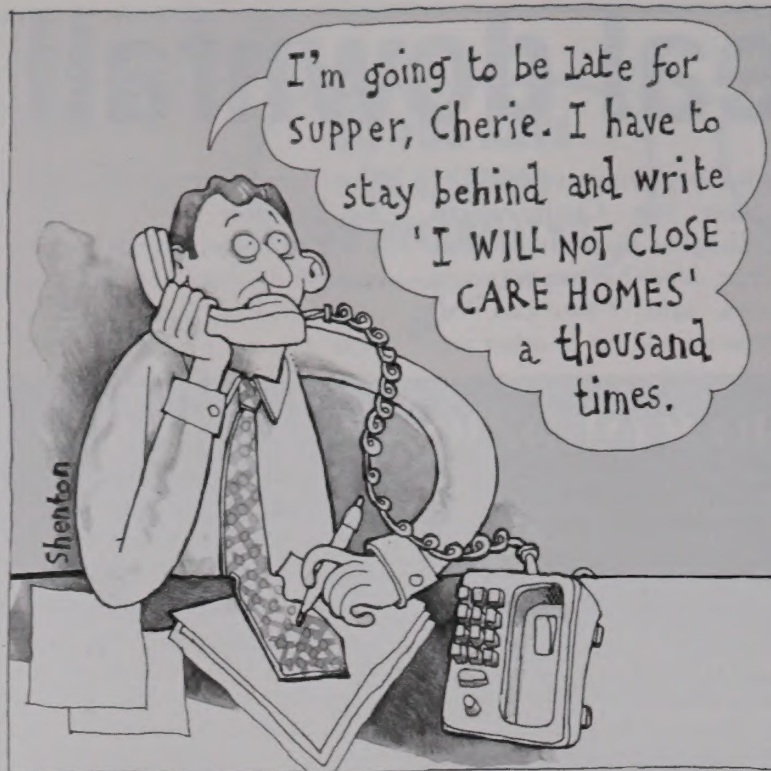 I'm going to be late for
supper, Cherie. I have to
stay behind and write
'I WILL NOT CLOSE
CARE HOMES'
a thousand
times.
Shenton